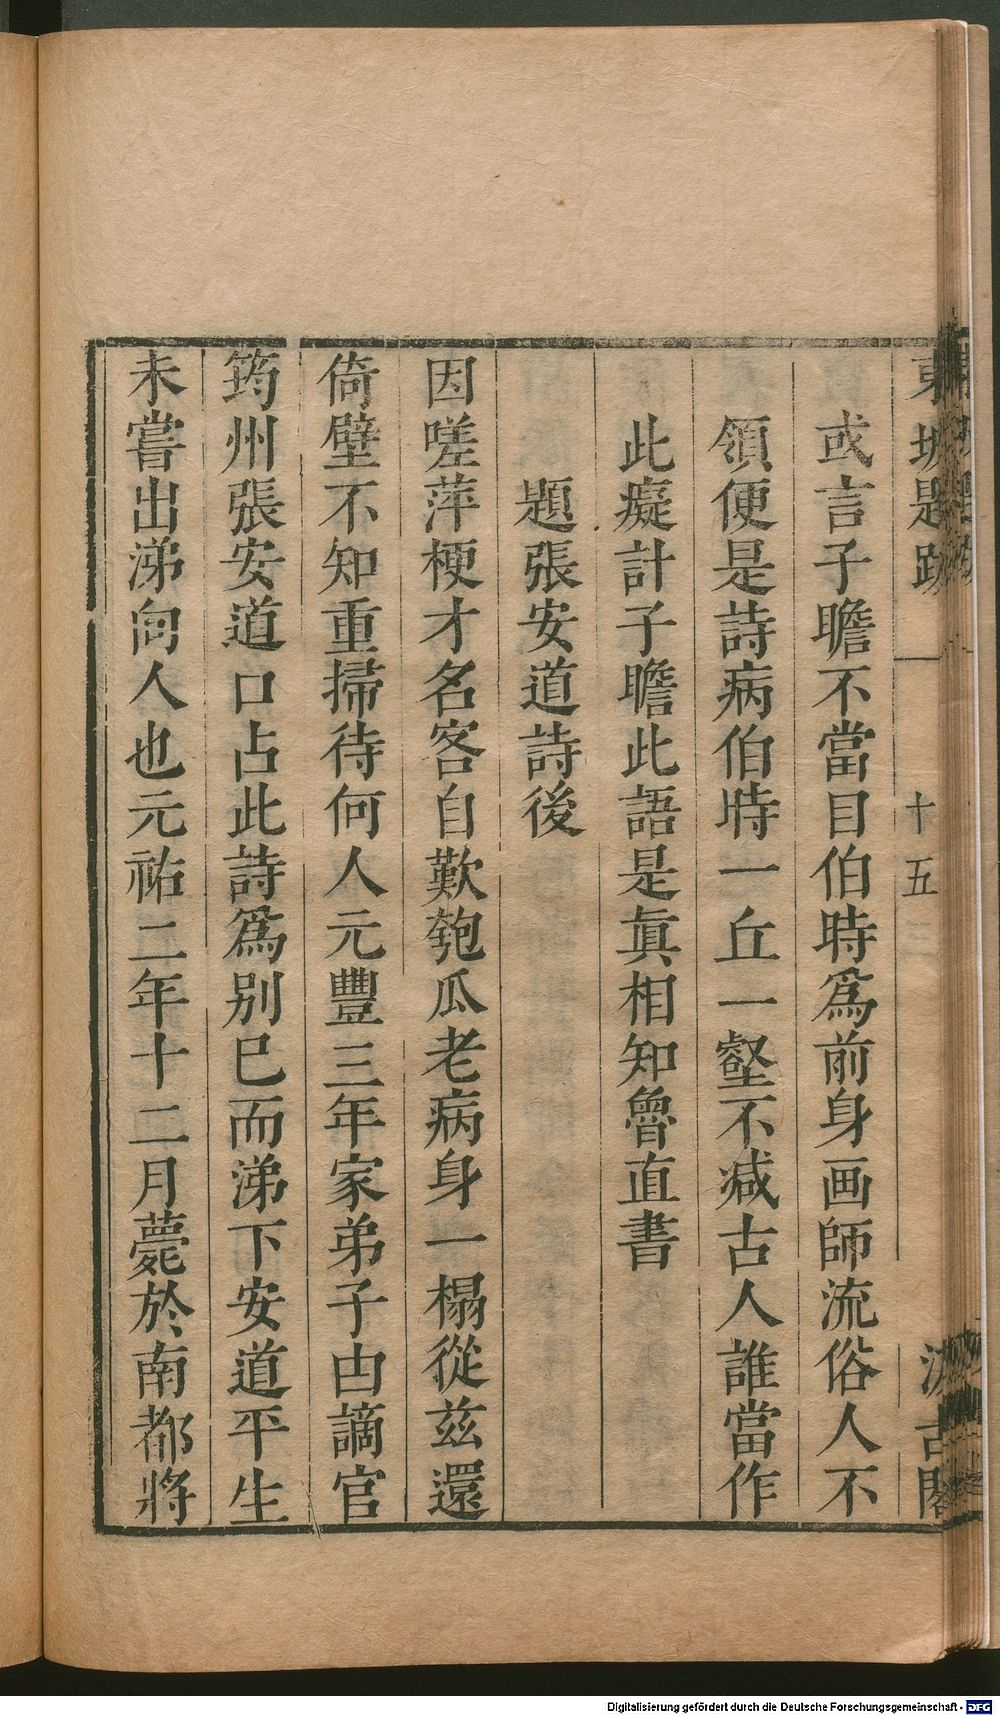 東坡題跋
十五
汲古閣
或言子瞻不當目伯時爲前身画師流俗人不
領便是詩病伯時一丘一壑不减古人誰當作
此癡計子瞻此語是眞相知魯直書
題張安道詩後
因嗟萍梗才名客自歎匏瓜老病身一榻從茲還
倚壁不知重掃待何人元豐三年家弟子由謫官
筠州張安道口占此詩爲别已而涕下安道平生
未嘗出涕向人也元祐二年十二月薨於南都將
Digitalisierung gefördert durch die Deutsche Forschungsgemeinschaft - DFG